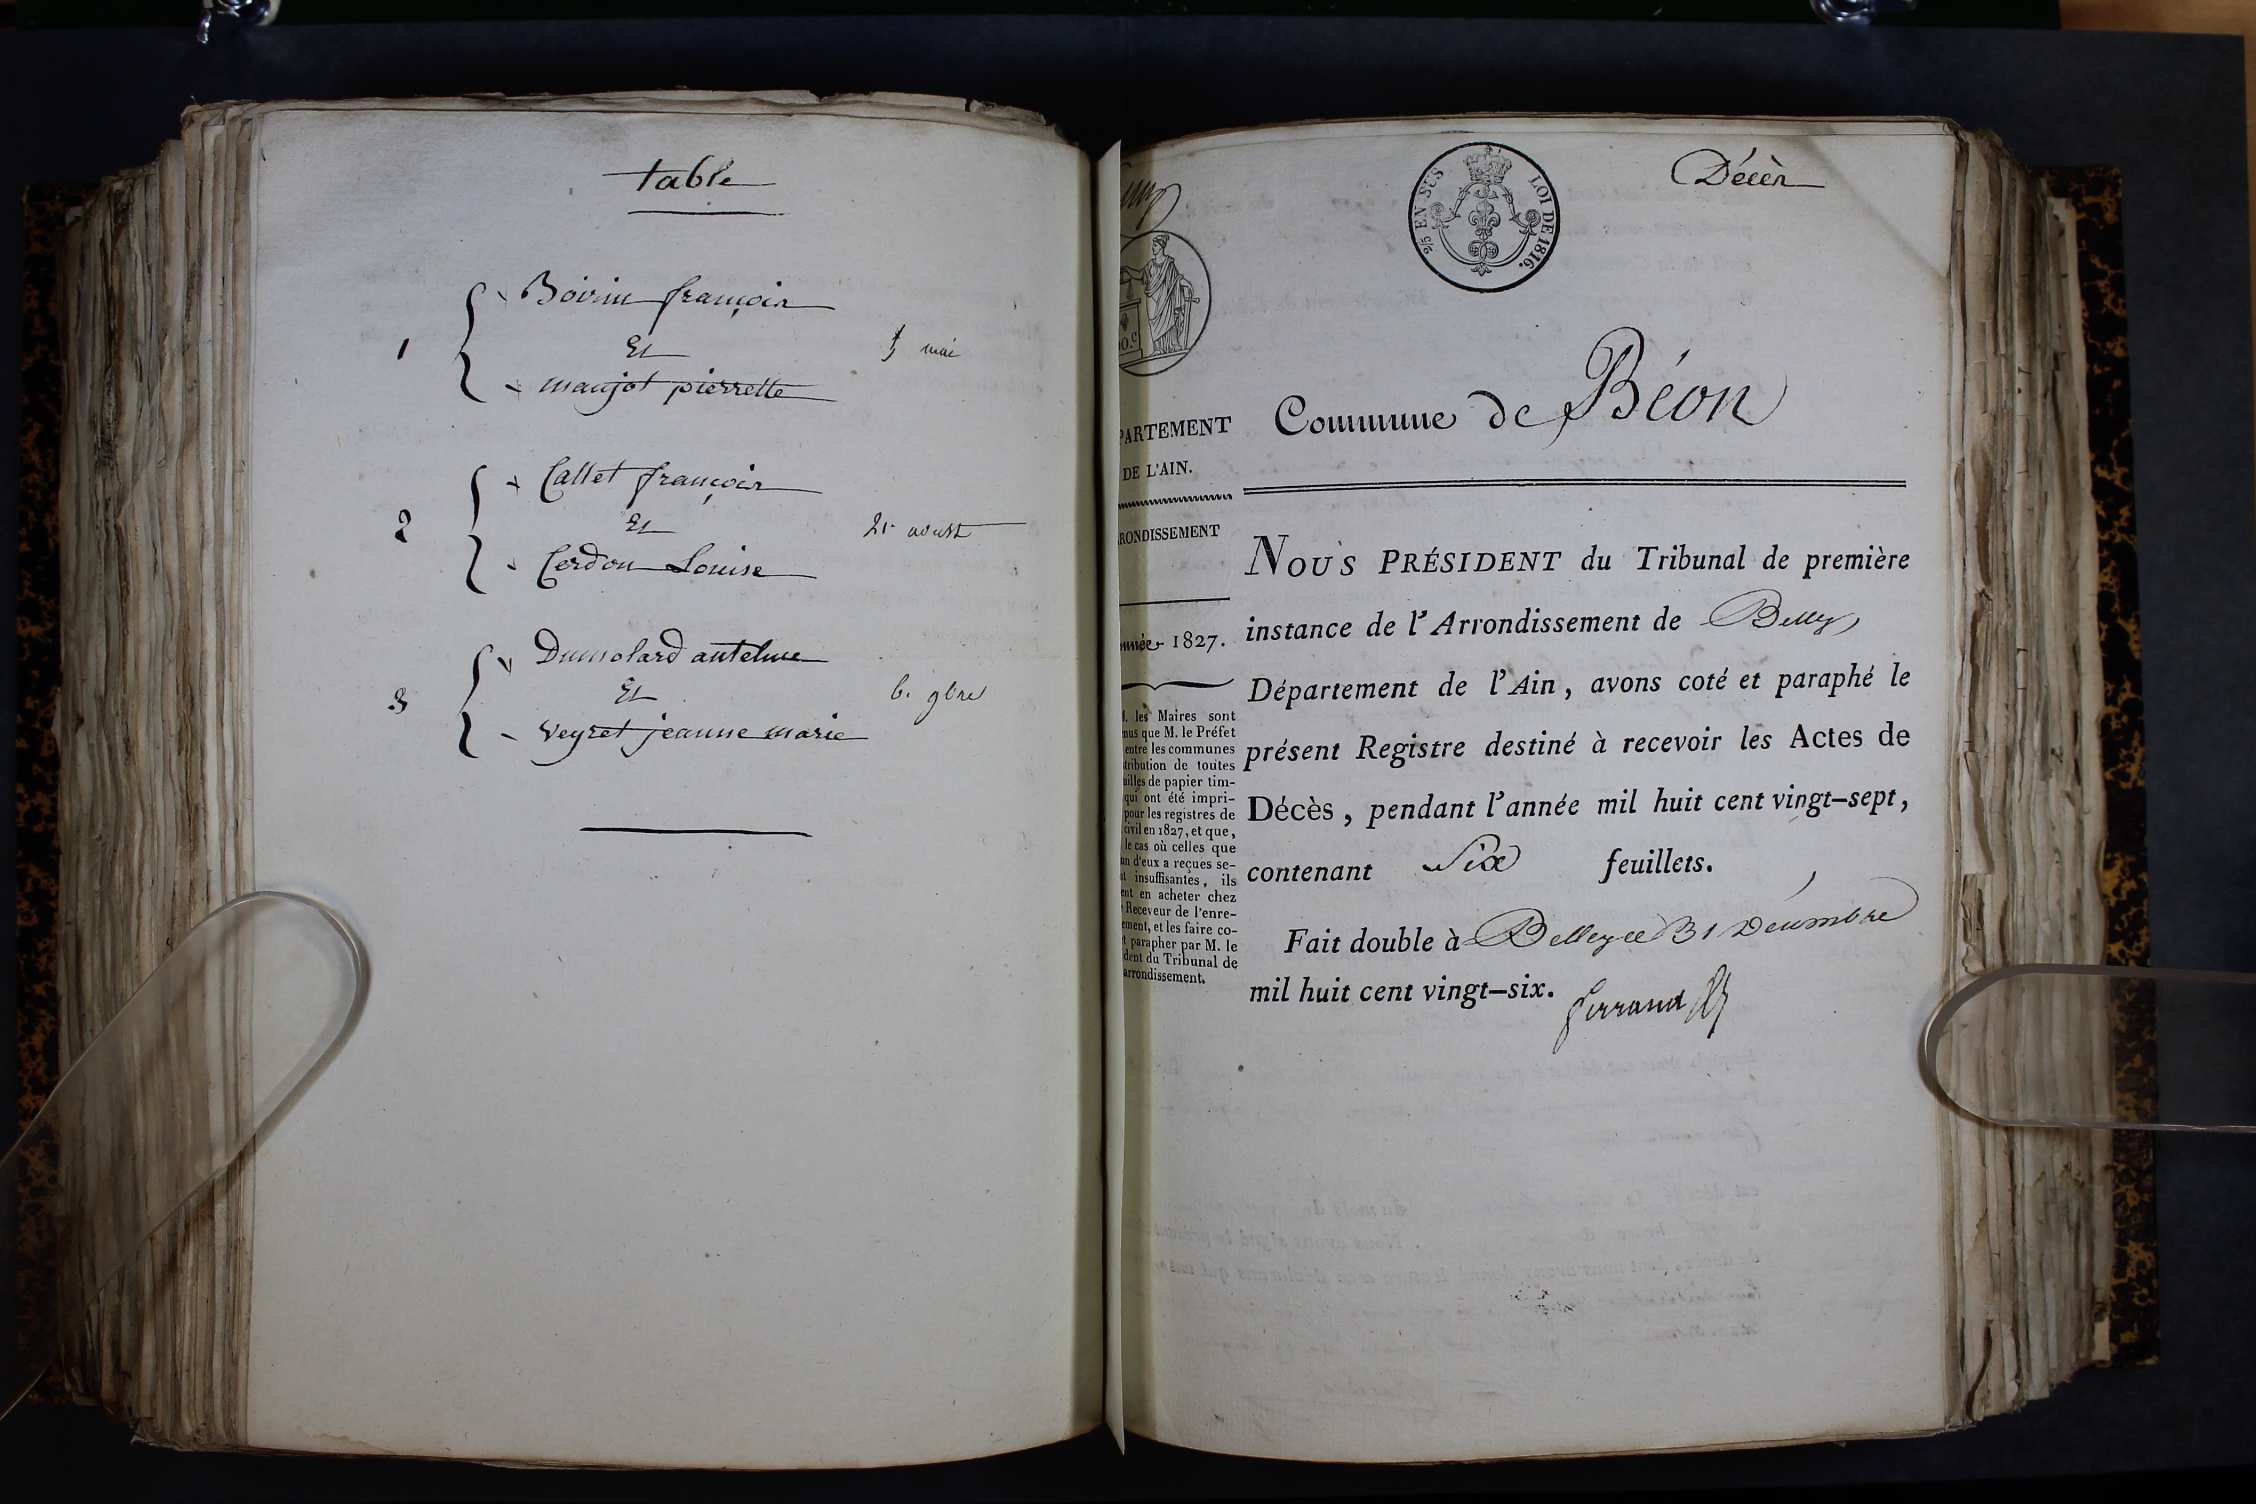 table
Bovin françois
1 Et 5 mai
maujot pierrette
Callet françois
2 Et 21 aoust
Cerdon Louise
Dumolard antelme
3 Et 6. 9bre
Veyret jeanne marie
2/5 EN SUS LOI DE 1816.
Décès
Commune de Béon
PARTEMENT
DE L'AIN.
RONDISSEMENT
nnée 1827.
M. les Maires sont
nus que M. le Préfet
entre les communes
tribution de toutes
uilles de papier tim-
qui ont été impri-
pour les registres de
civil en 1827, et que,
le cas où celles que
un d'eux a reçues se-
nt insuffisantes, ils
ent en acheter chez
Receveur de l'enre-
ement, et les faire co-
et parapher par M. le
dent du Tribunal de
arrondissement.
NOUS PRÉSIDENT du Tribunal de première
instance de l'Arrondissement de Belley
Département de l'Ain, avons coté et paraphé le
présent Registre destiné à recevoir les Actes de
Décès, pendant l'année mil huit cent vingt-sept,
contenant Six feuillets.
Fait double à Belley ce 31 Décembre
mil huit cent vingt-six.
ferrand